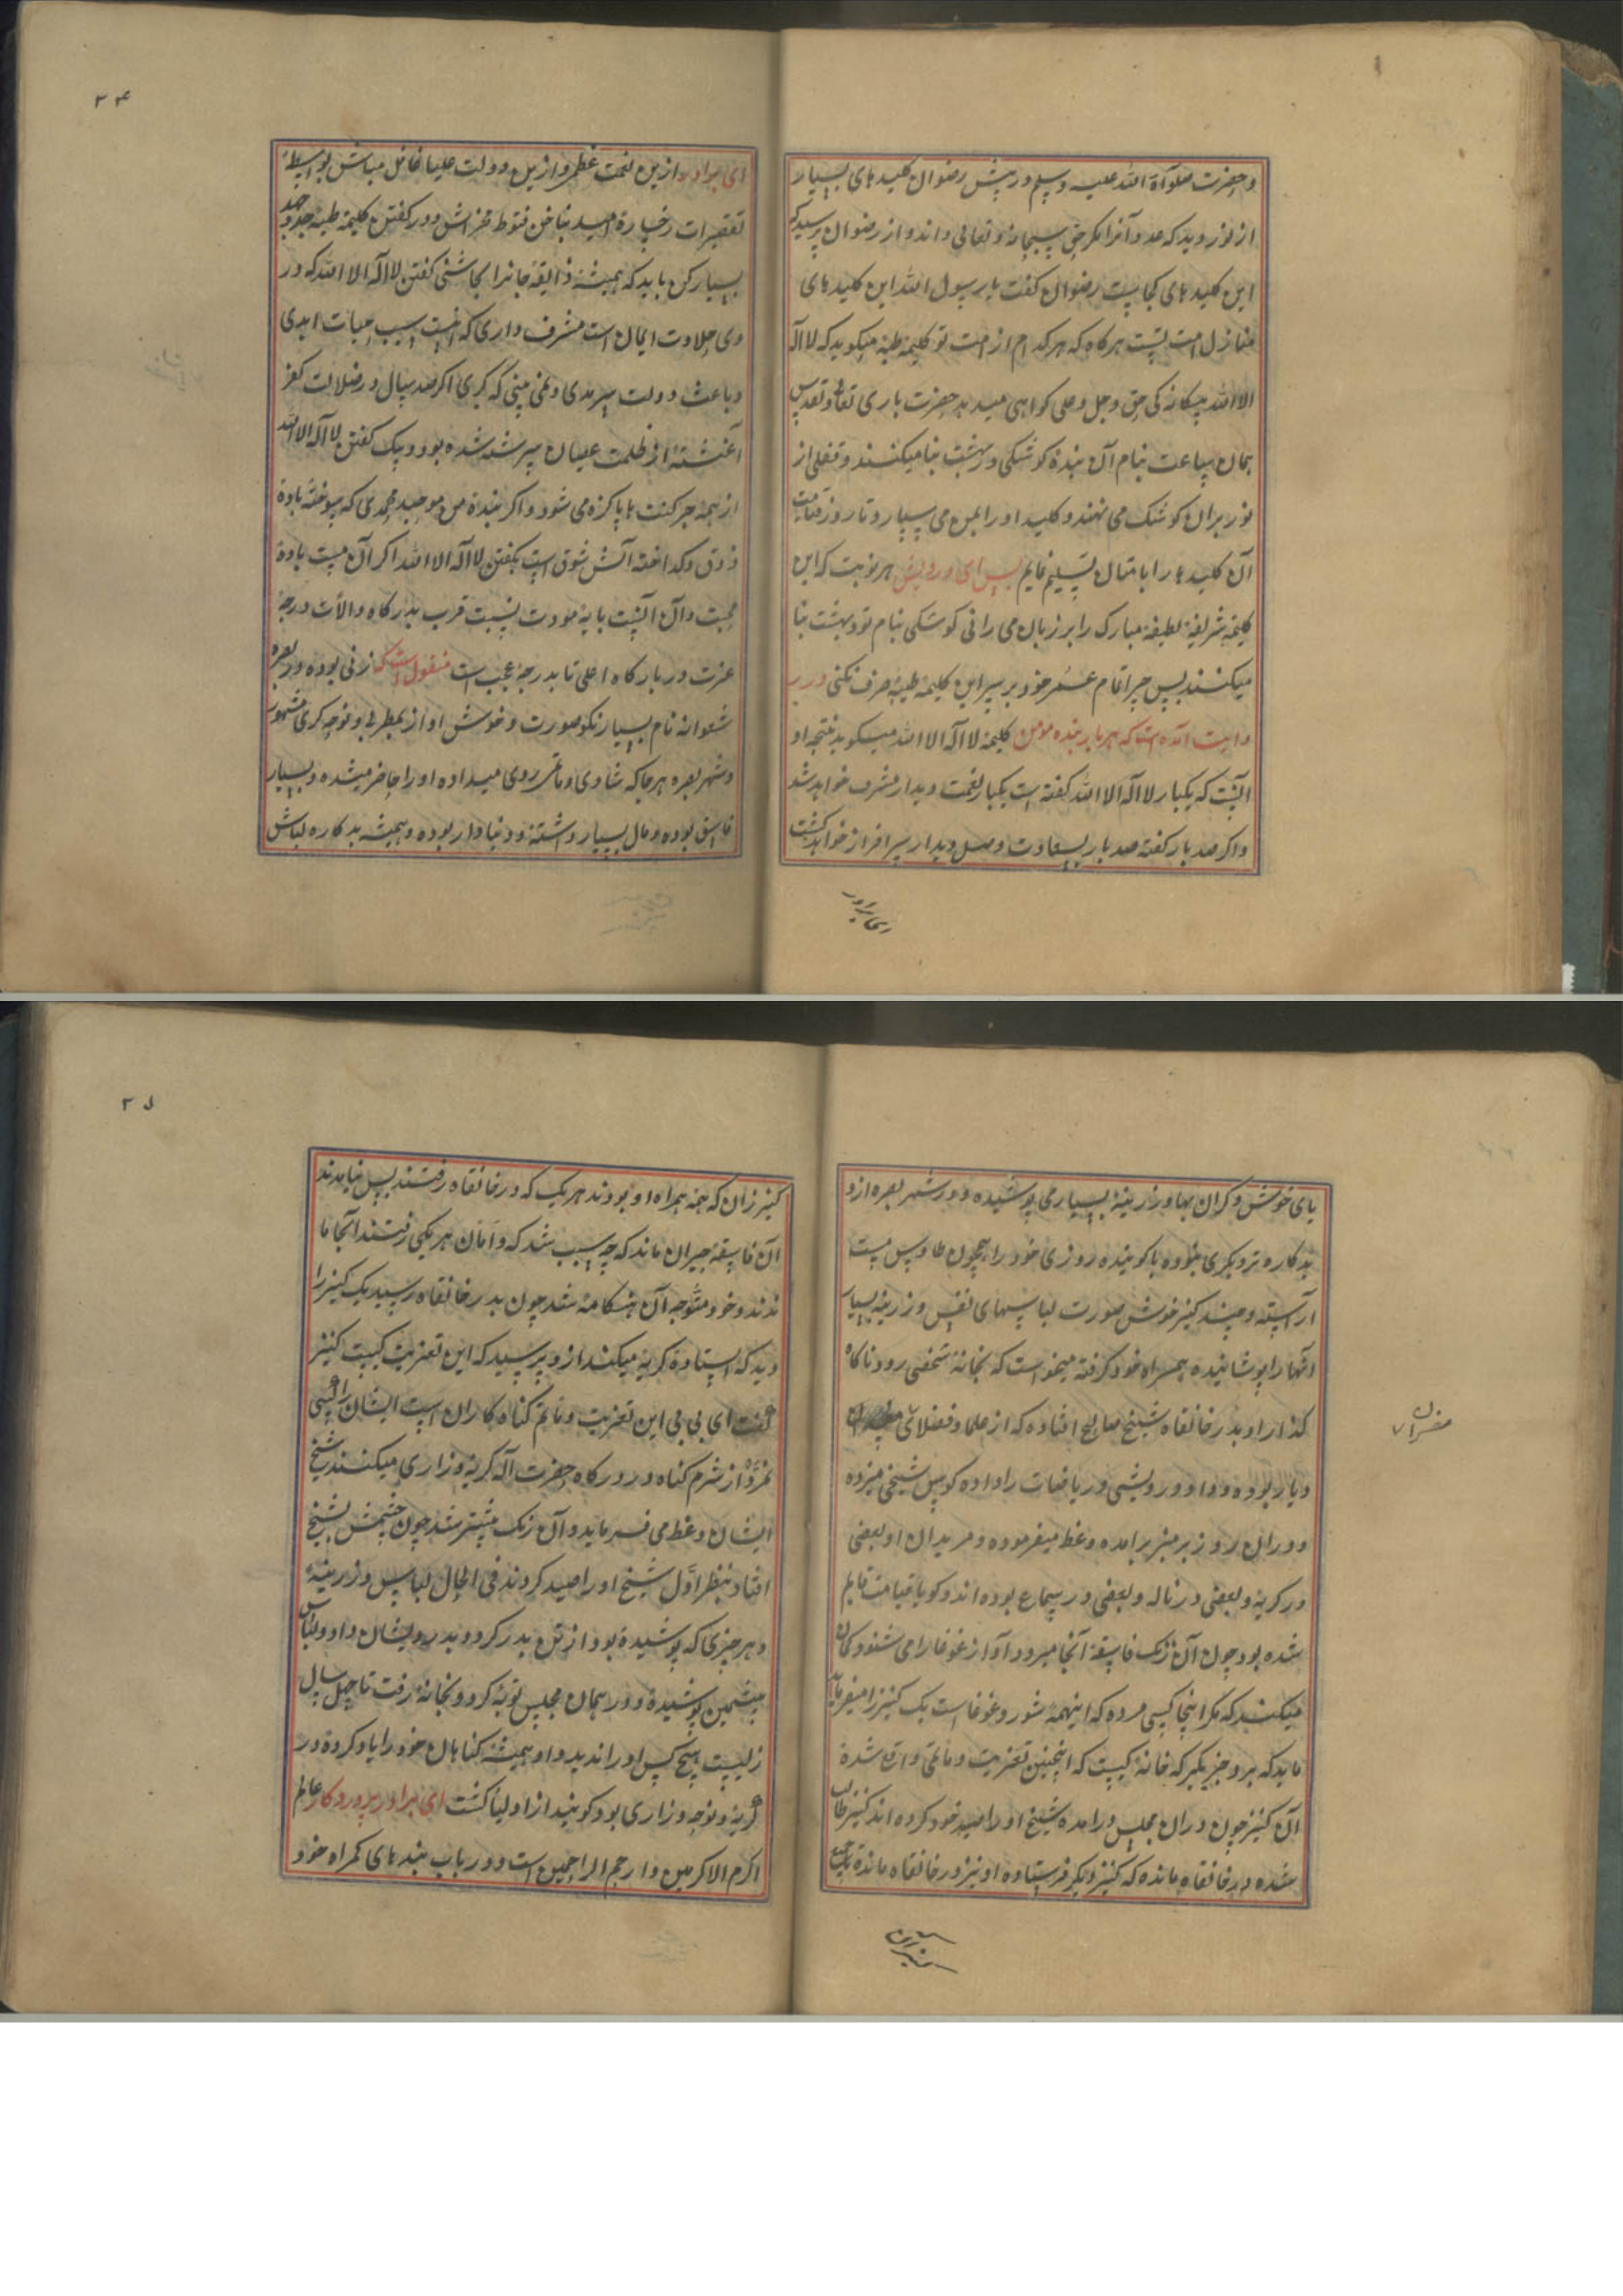 و حضرت صلوآة الله علیه وسلم در پیش رضوان کلید های بسیار
از نور دید که عدد آنرا مگر حق سبحانه وتعالی داند و از رضوان پرسید که
این کلید های کجاست رضوان کفت یا رسول الله این کلید های
منازل امت تست هرکاه که هرکدام از امت تو کلیمه طیبه میکوید که لا اله
الا الله بیکانه کی حق وجل وعلی کواهی میدهد حضرت باری تعالی وتقدس
بمان ساعت بنام آن بنده کوشکی در بهشت بنا میکنند و قفلی از
نور بران کوشک می نهند و کلید او را بمن می سپارد تا روز قیامت
آن کلید ها را بامتان تسلیم نمایم پس ای درویش هر نوبت که این
کلیمه شریفه لطیفه مبارک را بر زبان می رانی کوشکی بنام تو در بهشت بنا
میکنند پس چرا تمام عمر خود بر سر این کلیمه طیبه صرف نکنی در ر
وایت آمده است که هر بار بنده مومن کلیمه لا اله الا الله میکوید نتیجه او
آنست که یکبار لا اله الا الله کفته است یکبار بنعمت دیدار مشرف خواهد شد
و اکر صد بار کفته صد بار بسعادت وصل دیدار سرافراز خواهد کشت
ای برادر
۲۴
ای برادر ازین نعمت عظمی و ازین دولت علیا غافل مباش بواسطهٔ
تقصیرات رخساره امید بناخن قنوط مخراش و در کفتن کلیمه طیبه جد و جهد
بسیار کن باید که همیشه ذایقه جانرا بچاشنی کفتن لا اله الا الله که در
وی حلاوت ایمان است مشرف داری که آنست سبب حیات ابدی
و باعث دولت سرمدی و نمی بینی که کبری اکر صد سال در ضلالت کفر
آغشته از ظلمت عصیان سرشته شده بود و بیک کفتن لا اله الا الله
از همه جرکنت ها پاکزه می شود و اکر بنده من موحد محمدی که سوخته باده
ذوق و کداخته آتش شوق است بکفتن لا اله الا الله اکر آن مست باده
محبت و آن پایه مودت نسبت قرب بدرکاه والاش درجه
عزت در بارکاه اعلی تا بدرجه عجب است منقول است که زنی بوده در بصره
شعوانه نام بسیار نکو صورت و خوش اواز بمطربی و نوحه کری مشهور
و شهر بصره هر جا که شادی و ماتمی روی میداده او را حاضر میشده و بسیار
فاسق بوده و مال بسیار داشته و دنیا دار بوده و همیشه بد کاره لباس
های خوش و کران بها و زرینه بسیار می پوشیده و در شهر بصره ازو
بد کاره تر دیکری نبوده باکوینده روزی خود را همچون طاوس مست
آراسته و چند کنیز خوش صورت لباسهای نفیس و زرینه بسیار
آنها را پوشانیده همراه خود کرفته میخواست که بخانهٔ شخصی رود ناکاه
کذار او بدر خانقاه شیخ صالح افتاده که از علما و فضلای
دیار بوده و داد درویشی و ریاضات را داده کوس شیخی میزده
و دران روز بر منبر برامده وعظ میفرموده و مریدان او بعضی
در کریه و بعضی در ناله و بعضی در سماع بوده اند و کویا قیامت قایم
شده بود چون آن زنک فاسقه آنجا میرود آواز غوغا را می شنود کمان
میکند که مکر اینجا کسی مرده که اینهمه شور و غوغا است یک کنیز را میفرماید
ماید که برو خبر بکیر که خانه کیست که اینچنین تعزیت و ماتمی واقع شده
آن کنیز چون دران مجلس درامده شیخ او را صید خود کرده اند کنیز طالب
شده در خانقاه مانده که کنیز دیکر فرستاده او نیز در خانقاه مانده
کنیزان
۲۵
کنیزان که همه همراه او بودند هر یک که در خانقاه رفتند پس نیامدند
آن فاسقه حیران ماند که چه سبب شد که دامان هر یکی رفتند آنجا ما
ندند و خود متوجه آن هنکامه شد چون بدر خانقاه رسید یک کنیز را
دید که ایستاده کریه میکند ازو پرسید که این تعزیت کیست کنیز
کفت ای بی بی این تعزیت و ماتم کناه کاران است ایشان را کسی
نمرده از شرم کناه در درکاه حضرت آله کریه و زاری میکنند شیخ
ایشان وعظ می فرماید و آن زنک پیشتر شد چون چشمش بشیخ
افتاد بنظر اول شیخ او را صید کردند فی الحال لباس و زرینهٔ
و هر چیزی که پوشیده بود از تن بدر کرد و بدرویشان داد و لباس
پشمین پوشیده و در همان مجلس توبه کرد و بخانه رفت تا چهل سال
زلیست هیچ کس او را ندید و او همیشه کناهان خود را یاد کرده در
کریه و نوحه و زاری بود کویند از اولیا کشت ای برادر پروردکار عالم
اکرم الاکرمین و ارحم الراحمین است و در باب بنده های کمراه خود